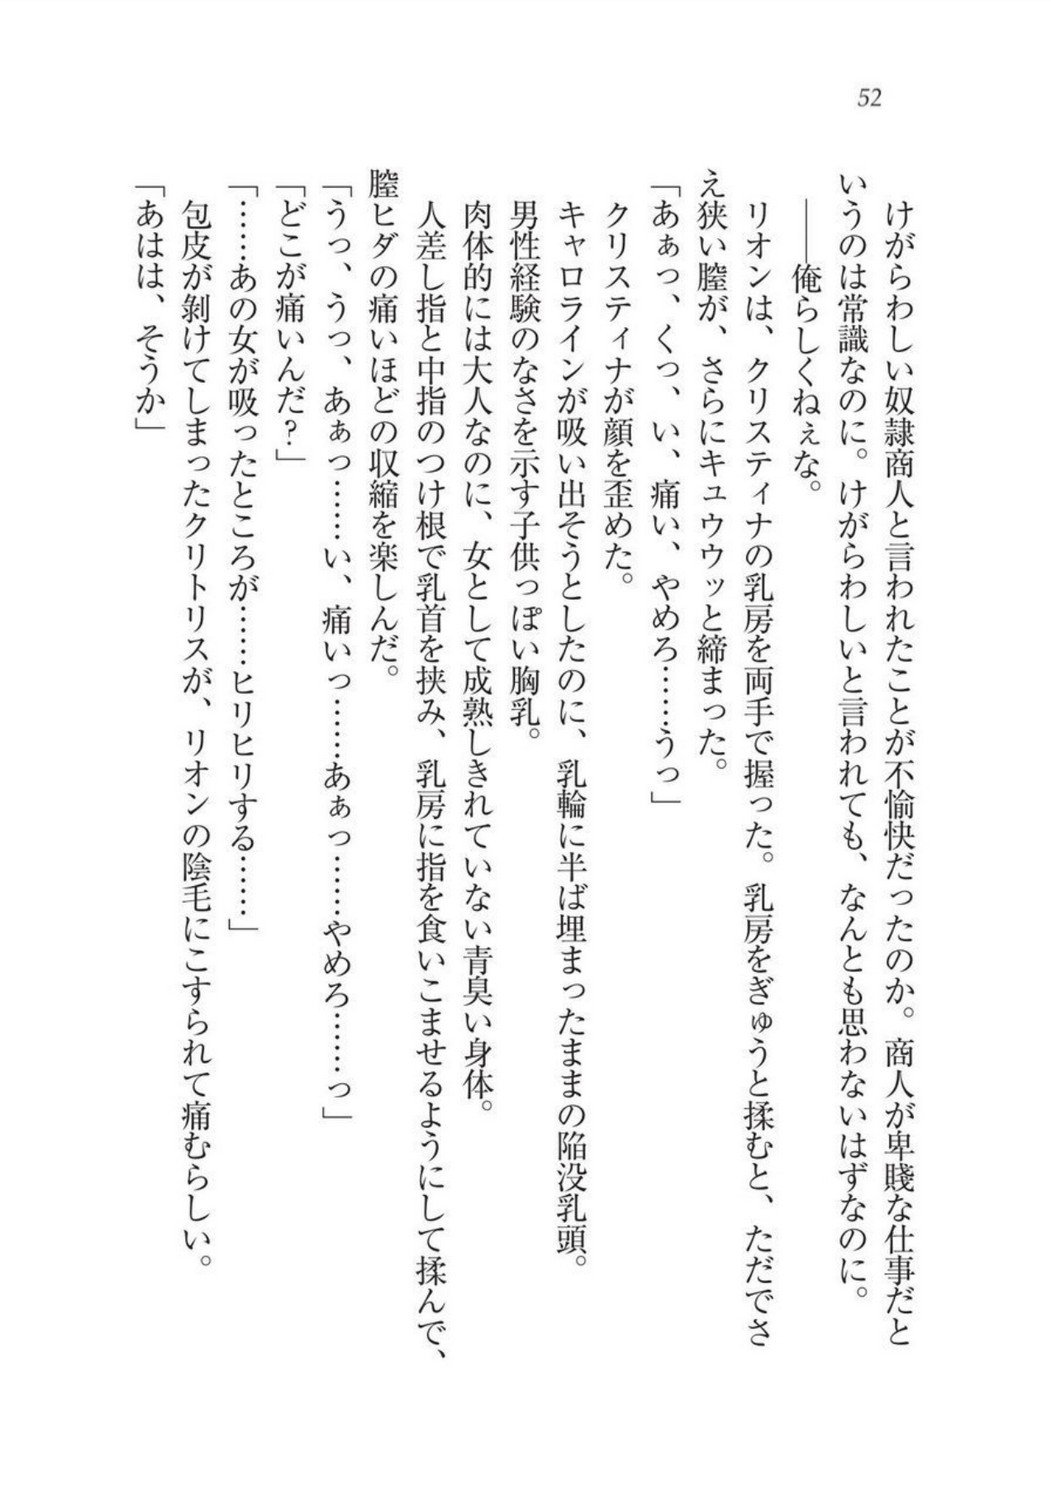 52
けがらわしい奴隷商人と言われたことが不愉快だったのか。商人が卑賤な仕事だと
いうのは常識なのに。けがらわしいと言われても、なんとも思わないはずなのに。
――俺らしくねぇな。
リオンは、クリスティナの乳房を両手で握った。乳房をぎゅうと揉むと、ただでさ
え狭い膣が、さらにキュウウッと締まった。
「あぁっ、くっ、い、痛い、やめろ……うっ」
クリスティナが顔を歪めた。
キャロラインが吸い出そうとしたのに、乳輪に半ば埋まったままの陥没乳頭。
男性経験のなさを示す子供っぽい胸乳。
肉体的には大人なのに、女として成熟しきれていない青臭い身体。
人差し指と中指のつけ根で乳首を挟み、乳房に指を食いこませるようにして揉んで、
膣ヒダの痛いほどの収縮を楽しんだ。
「うっ、うっ、あぁっ……い、痛いっ……あぁっ……やめろ……っ」
「どこが痛いんだ？」
「……あの女が吸ったところが……ヒリヒリする……」
包皮が剝けてしまったクリトリスが、リオンの陰毛にこすられて痛むらしい。
「あはは、そうか」